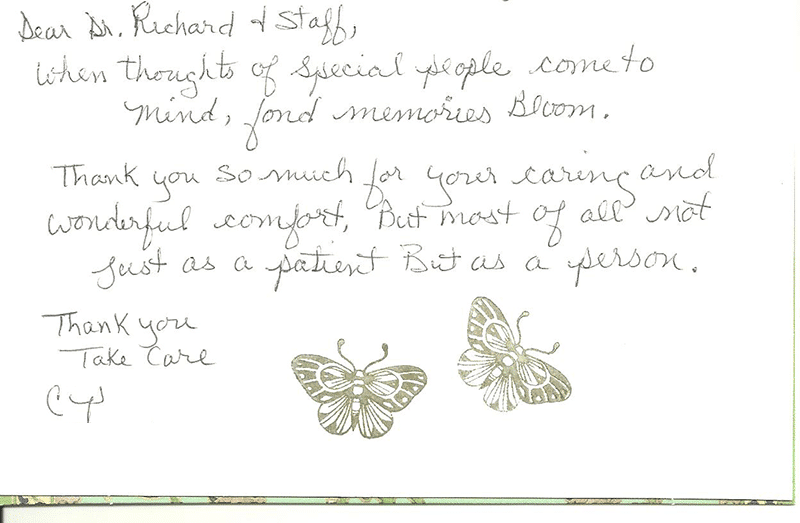 Dear Dr. Richard & Staff,
When thoughts of special people come to
Mind, fond memories Bloom.
Thank you so much for your caring and
wonderful comfort, But most of all not
just as a patient But as a person.
Thank you
Take Care